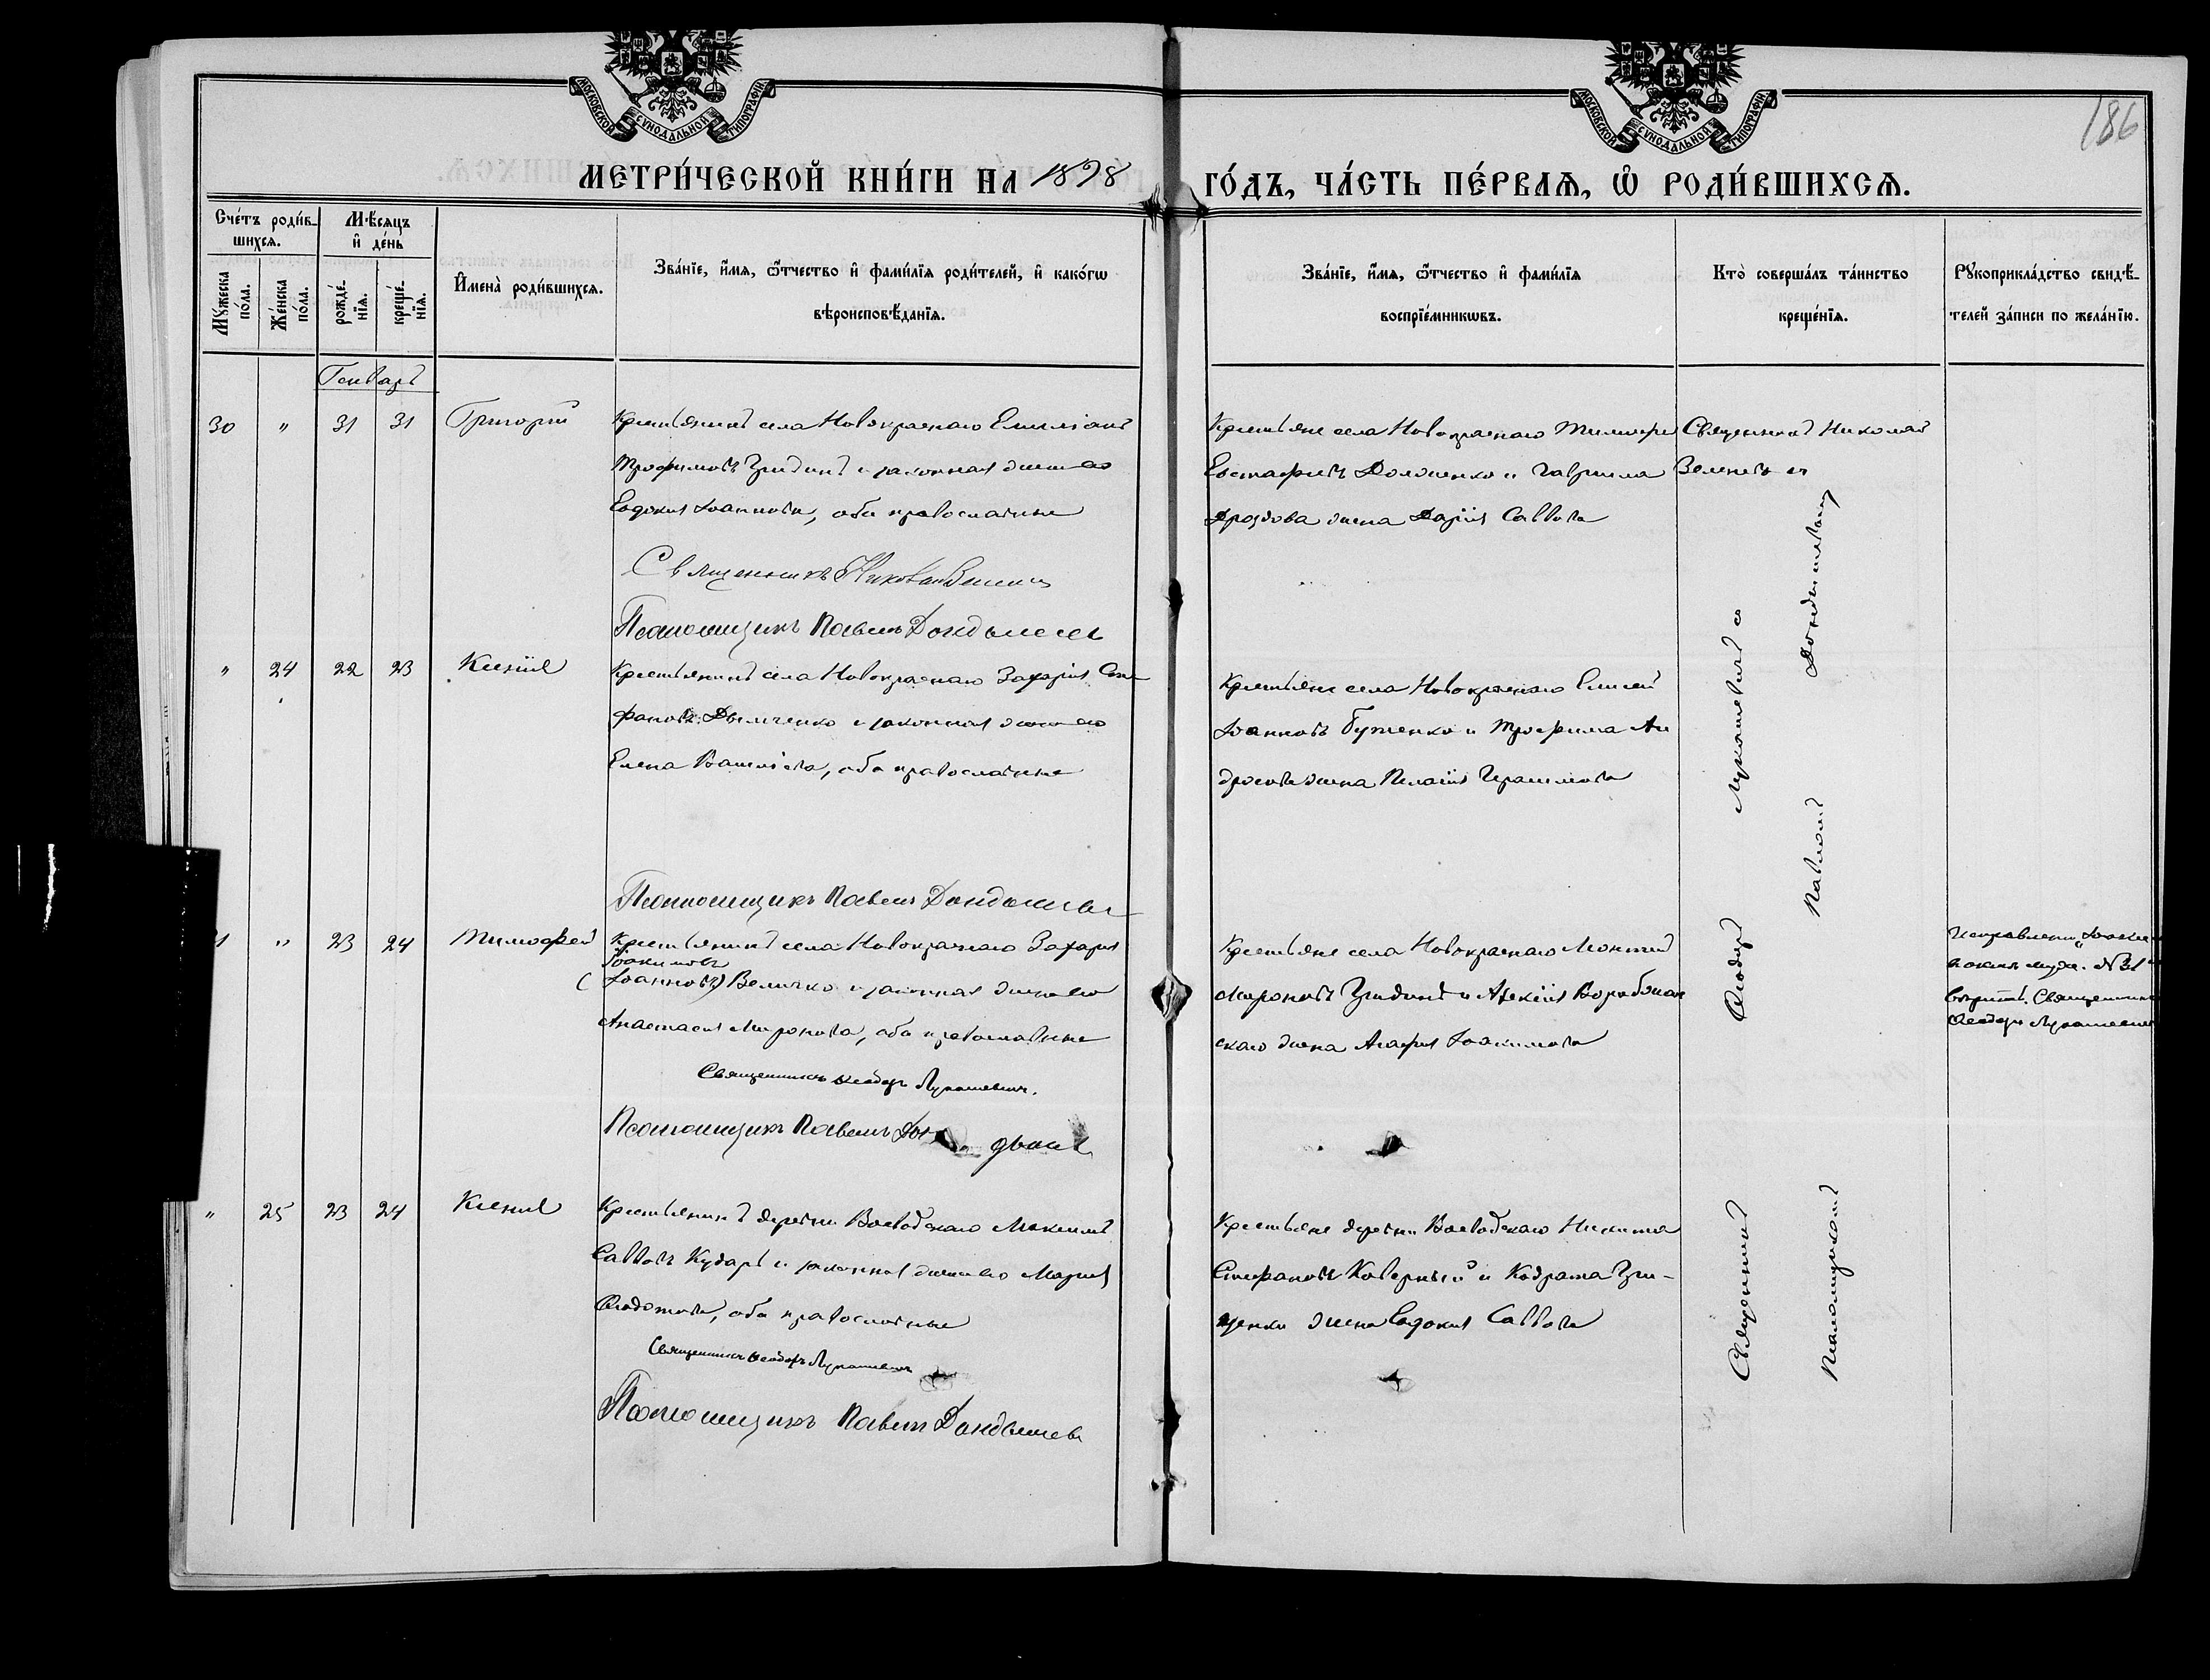 МОСКОВСКОЙ СѴНОДАЛЬНОЙ ТИПОГРАФІИ
МОСКОВСКОЙ СѴНОДАЛЬНОЙ ТИПОГРАФІИ
186
МЕТРИ́ЧЕСКОЙ КНИ́ГИ НА 1898 ГО́ДЪ, ЧА́СТЬ ПЕ́РВАѦ, Ѡ҆ РОДИ́ВШИХСѦ.
Сче́тъ роди́вшихсѧ.
Мꙋ́жеска по́ла.
Же́нска по́ла.
Мѣ́сѧцъ и҆ де́нь
рожде́нїѧ.
креще́нїѧ.
И҆мена̀ роди́вшихсѧ.
Зва́нїе, и҆́мѧ, ѻ҆́тчество и҆ фами́лїѧ роди́телей, и҆ како́гѡ
вѣроисповѣ́данїѧ.
Зва́нїе, и҆́мѧ, ѻ҆́тчество и҆ фами́лїѧ
воспрїе́мникѡвъ.
Кто̀ соверша́лъ та́инство
креще́нїѧ.
Рꙋкоприкла́дство свидѣ́-
телей за́писи по жела́нїю.
Генварь
30 " 31 31 Григорій
Крестьянинъ села Новокраснаго Емиліанъ
Трофимовъ Гридинъ и законная жена его
Евдокия Іоаннова, оба православные
Священникъ Николай
Псаломщикъ Павелъ Дондышевъ
Крестьяне села Новокраснаго Тимофей
Евстафіевъ Долженко и Гавриила
Дроздова жена Дарія Саввова
Священникъ Николай
" 24 22 23 Ксенія
Крестьянинъ села Новокраснаго Захарія Сте-
фановъ Дымченко и законная жена его
Елена Василіева, оба православные
Псаломщикъ Павелъ Дондышевъ
Крестьяне села Новокраснаго Елисей
Іоанновъ и Трофима Ан
дросова жена Пелагія Герасимова
" 23 24 Тимофей
Крестьянинъ села Новокраснаго Захарія
Іоакимовъ
(Іоанновъ) Величко и законная жена его
Анастасия Миронова, оба православные
Священникъ Ѳеодоръ Лукашевичъ.
Псаломщикъ Павелъ
Крестьяне села Новокраснаго
Мироновъ Гридинъ и Алексія
скаго жена Агафія Іоакимова
Исправленному
вѣрить. Священникъ
Ѳеодоръ Лукашевичъ
" 25 23 24 Ксенія
Крестьянинъ деревни Воеводскаго Максимъ
Саввовъ Кударь и законная жена его Марія
Ѳеодотова, оба православные
Священникъ Ѳеодоръ Лукашевичъ
Псаломщикъ Павелъ Дондышевъ
Крестьяне деревни Воеводскаго Никита
Стефановъ Каверный и Кодрата Гри-
щенки жена Евдокия Саввова
Священникъ Ѳеодоръ Лукашевичъ съ
Псаломщикомъ Павломъ Дондышевымъ